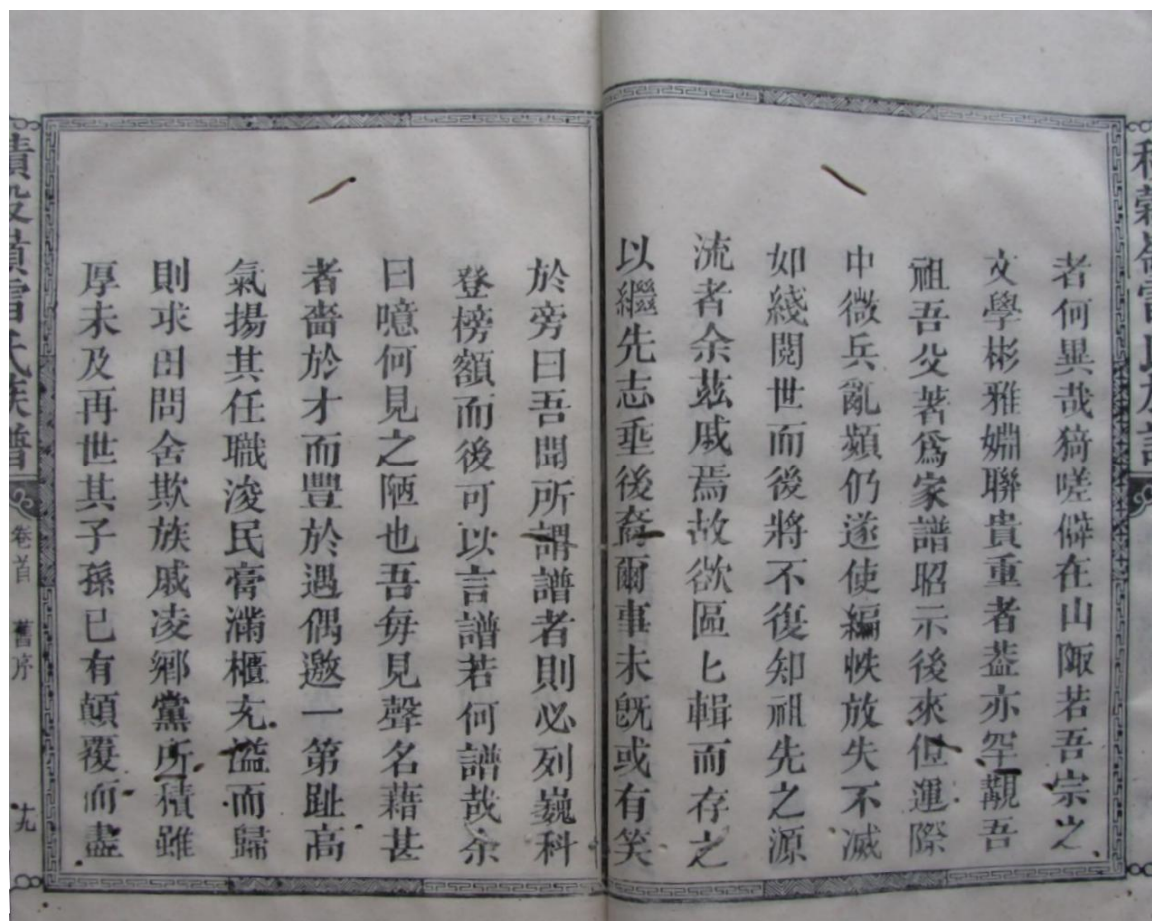 者何異哉猗嗟僻在山陬若吾宗之
文學彬雅婣聯貴重者葢亦罕覯吾
祖吾父著爲家譜昭示後來但運際
中微兵亂頻仍遂使編帙放失不滅
如綫閱世而後將不復知祖先之源
流者余玆戚焉故欲區匕輯而存之
以繼先志垂後裔爾事未旣或有笑
於旁曰吾聞所謂譜者則必列巍科
登榜額而後可以言譜若何譜哉余
曰噫何見之陋也吾每見聲名藉甚
者嗇於才而豐於遇偶邀一第趾高
氣揚其任職浚民膏滿櫃充溢而歸
則求田問舍欺族戚凌鄉黨所積雖
厚未及再世其子孫已有顛覆而盡
雷氏族譜
卷首
舊序
十九